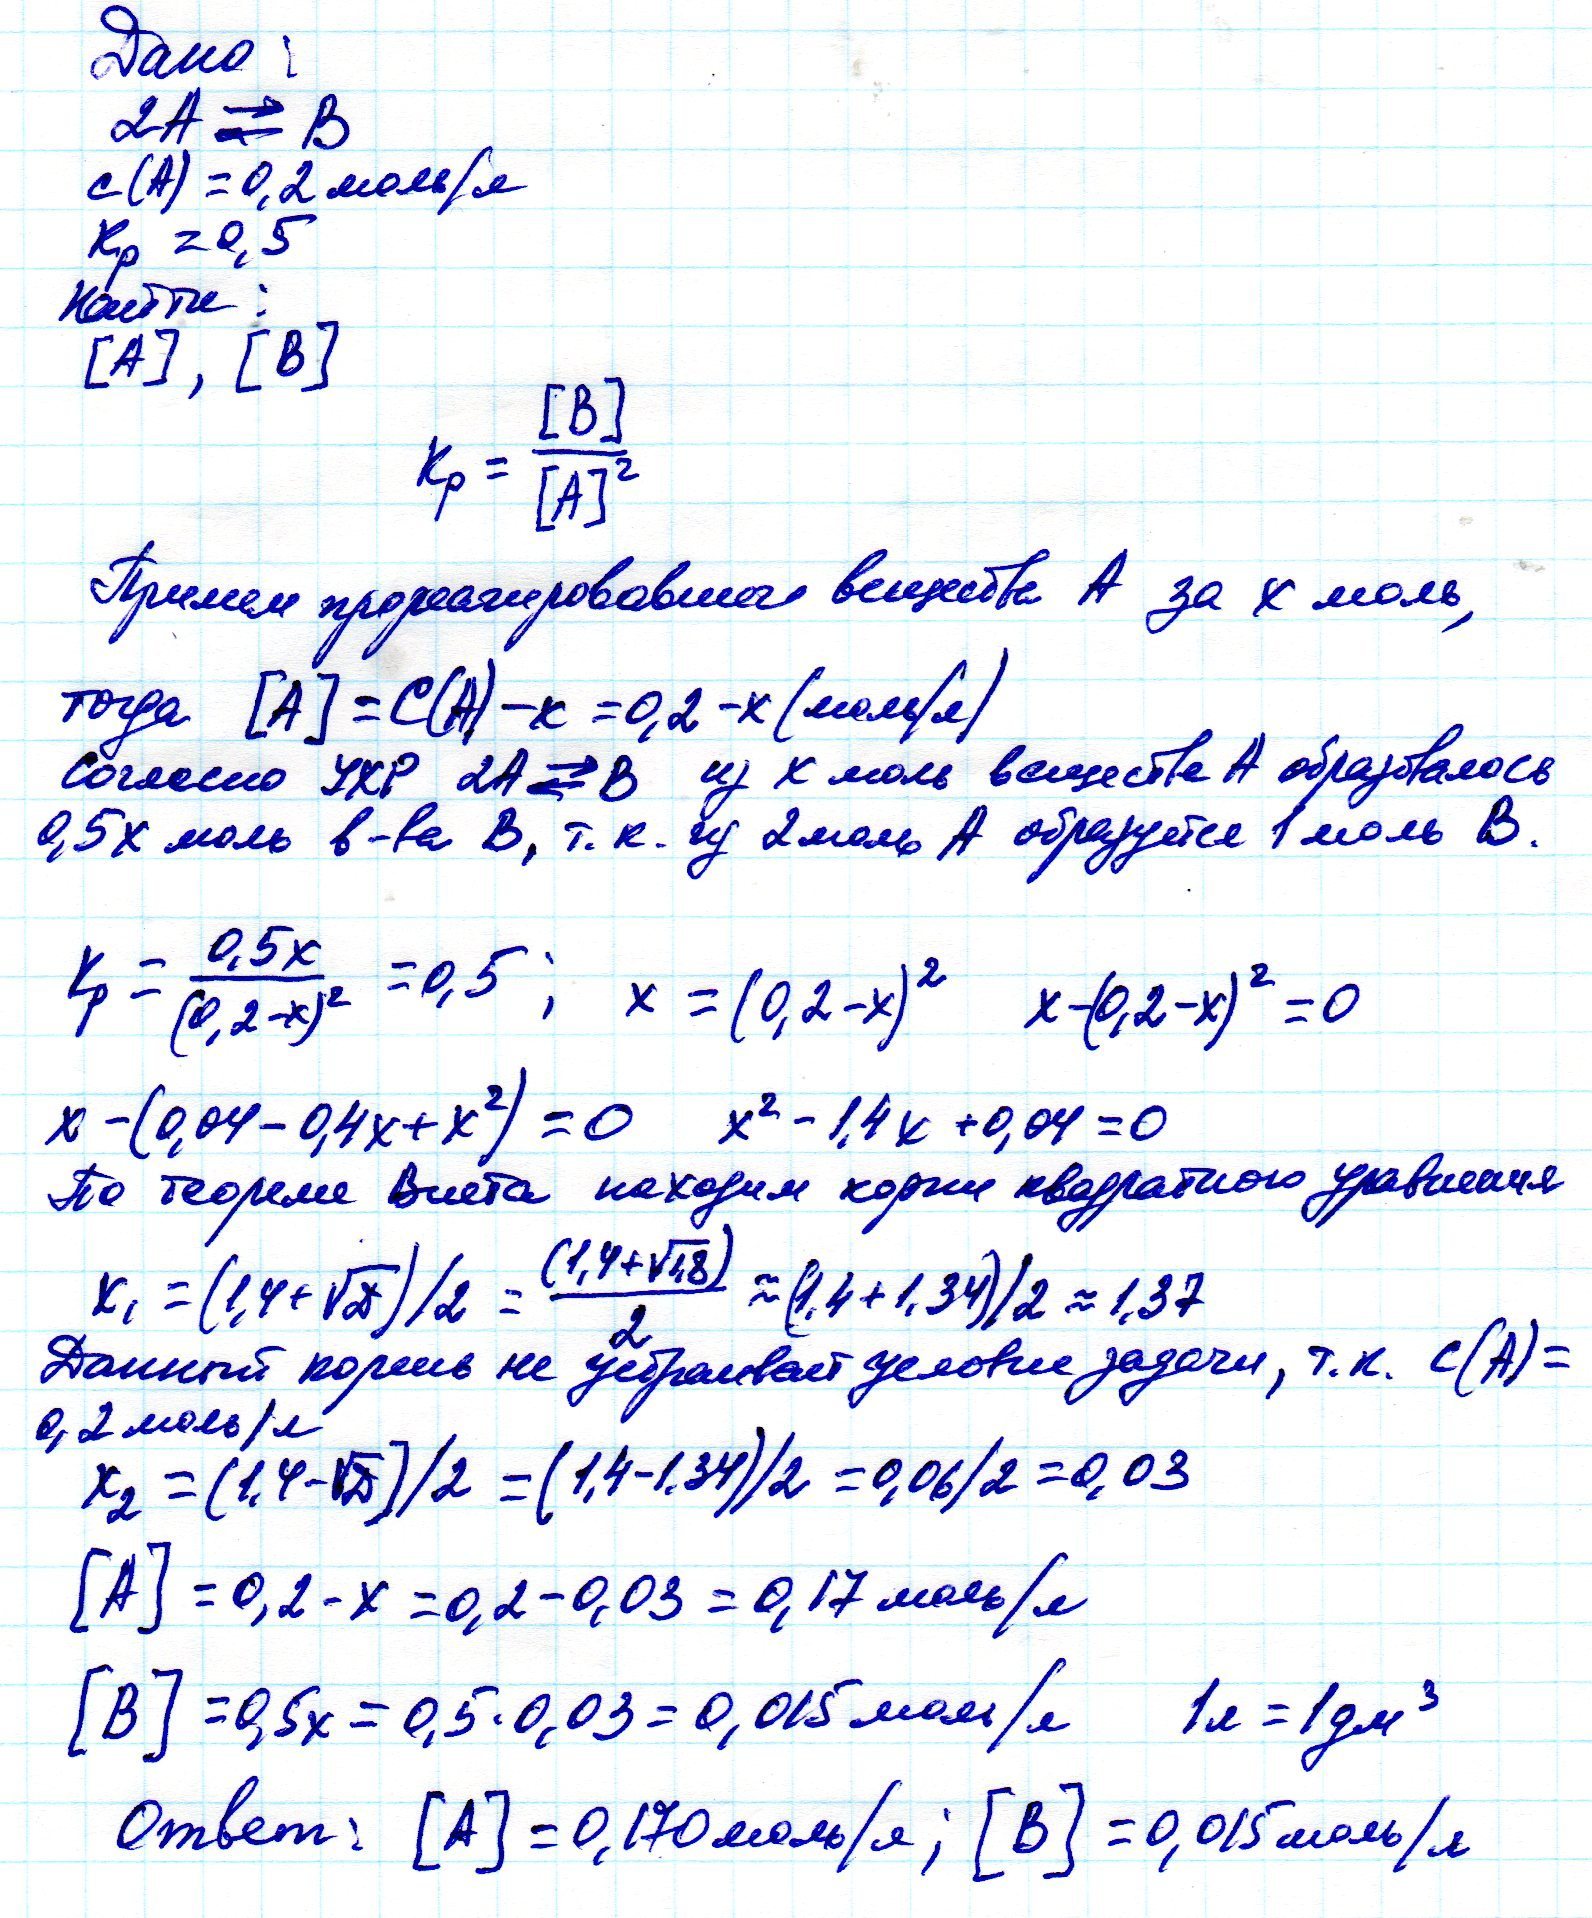 Дано:
2A ⇌ B
c(A) = 0,2 моль/л
Kр = 0,5
Найти:
[A], [B]
Kр = [B] / [A]²
Примем прореагировавшего вещества A за x моль,
тогда [A] = C(A) - x = 0,2 - x (моль/л)
Согласно УХР 2A ⇌ B из x моль вещества A образовалось
0,5x моль в-ва B, т.к. из 2 моль A образуется 1 моль B.
Kр = 0,5x / (0,2-x)² = 0,5; x = (0,2-x)² x-(0,2-x)² = 0
x - (0,04 - 0,4x + x²) = 0 x² - 1,4x + 0,04 = 0
По теореме Виета находим корни квадратного уравнения
x₁ = (1,4 + √D)/2 = (1,4 + √1,8) / 2 ≈ (1,4 + 1,34)/2 ≈ 1,37
Данный корень не устраивает условие задачи, т.к. c(A) =
0,2 моль/л
x₂ = (1,4 - √D)/2 = (1,4 - 1,34)/2 = 0,06/2 = 0,03
[A] = 0,2 - x = 0,2 - 0,03 = 0,17 моль/л
[B] = 0,5x = 0,5 · 0,03 = 0,015 моль/л 1л = 1дм³
Ответ: [A] = 0,170 моль/л; [B] = 0,015 моль/л